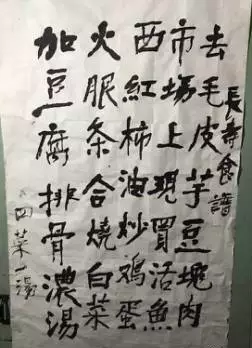 長寿食譜
去毛皮芋豆塊肉
市場上現買活魚
西紅柿油炒鸡蛋
火服条合燒白菜
加豆腐排骨濃湯
四菜一湯